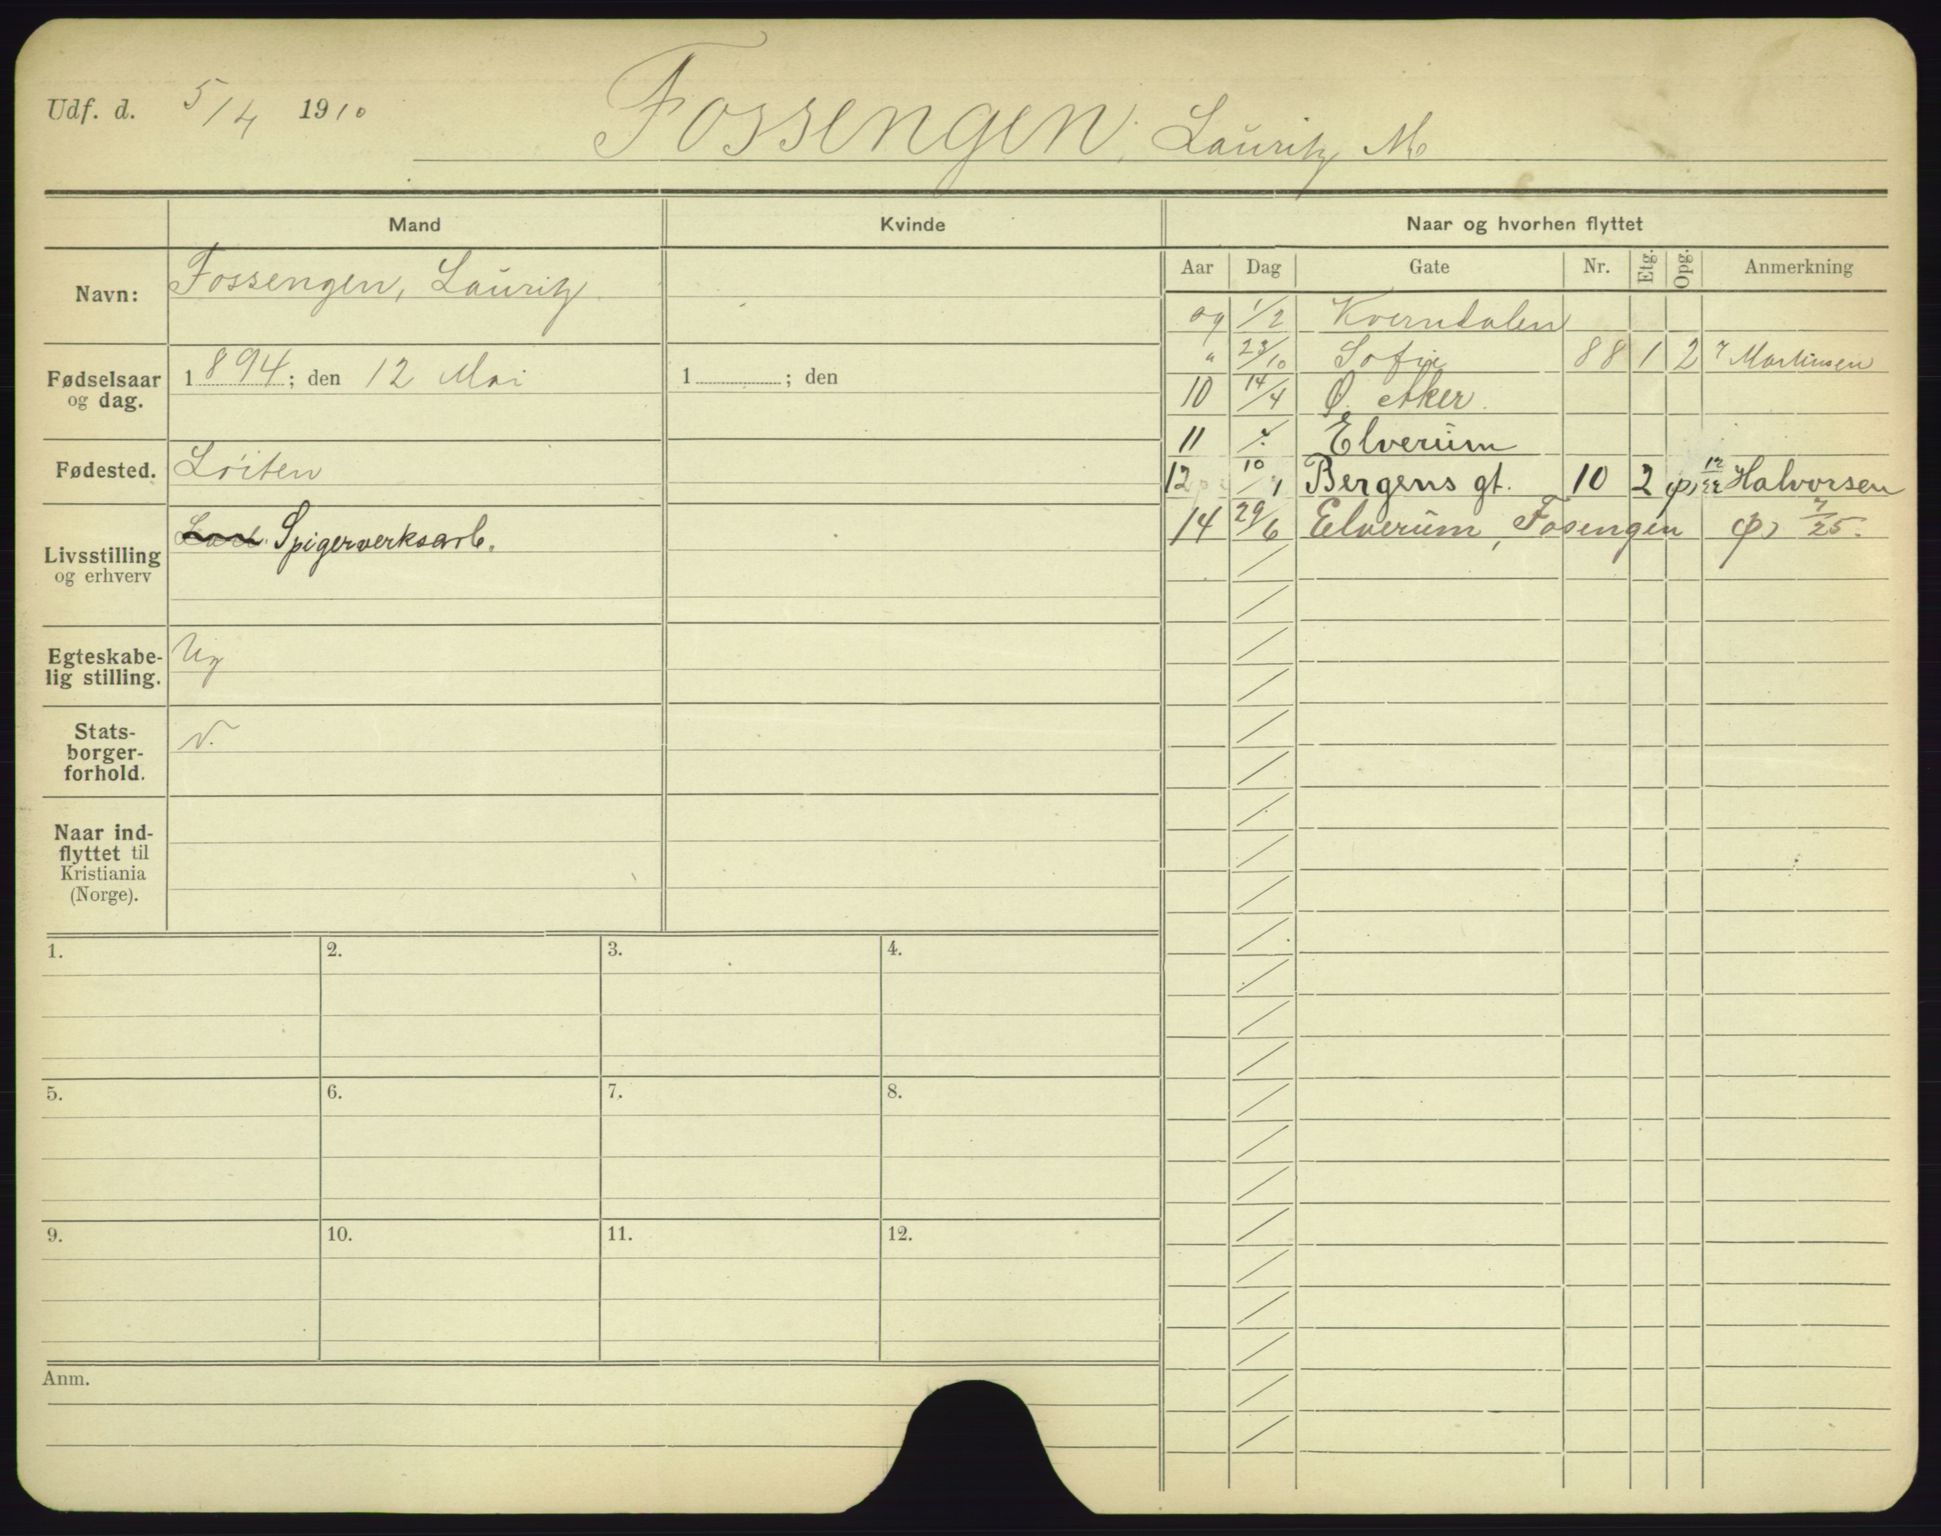 Udf. d. 5/4 1910 Fossengen, Lauritz M.
Mand Kvinde Naar og hvorhen flyttet
Navn: Fossengen, Lauritz
Fødselsaar og dag. 1894; den 12 Mai 1 ; den
Fødested. Løiten
Livsstilling og erhverv Spigerverksarb.
Egteskabelig stilling. Ug
Statsborgerforhold. N.
Naar indflyttet til Kristiania (Norge).
Aar Dag Gate Nr. Etg. Opg. Anmerkning
09 1/2 Kverndalen
" 23/10 Sofie 88 1 2 Martinsen
10 14/4 Ø. Aker.
11 Elverum
12 10/1 Bergens gt. 10 2 12/22 Halvorsen
14 29/6 Elverum, Fosengen 7/25.
1. 2. 3. 4.
5. 6. 7. 8.
9. 10. 11. 12.
Anm.